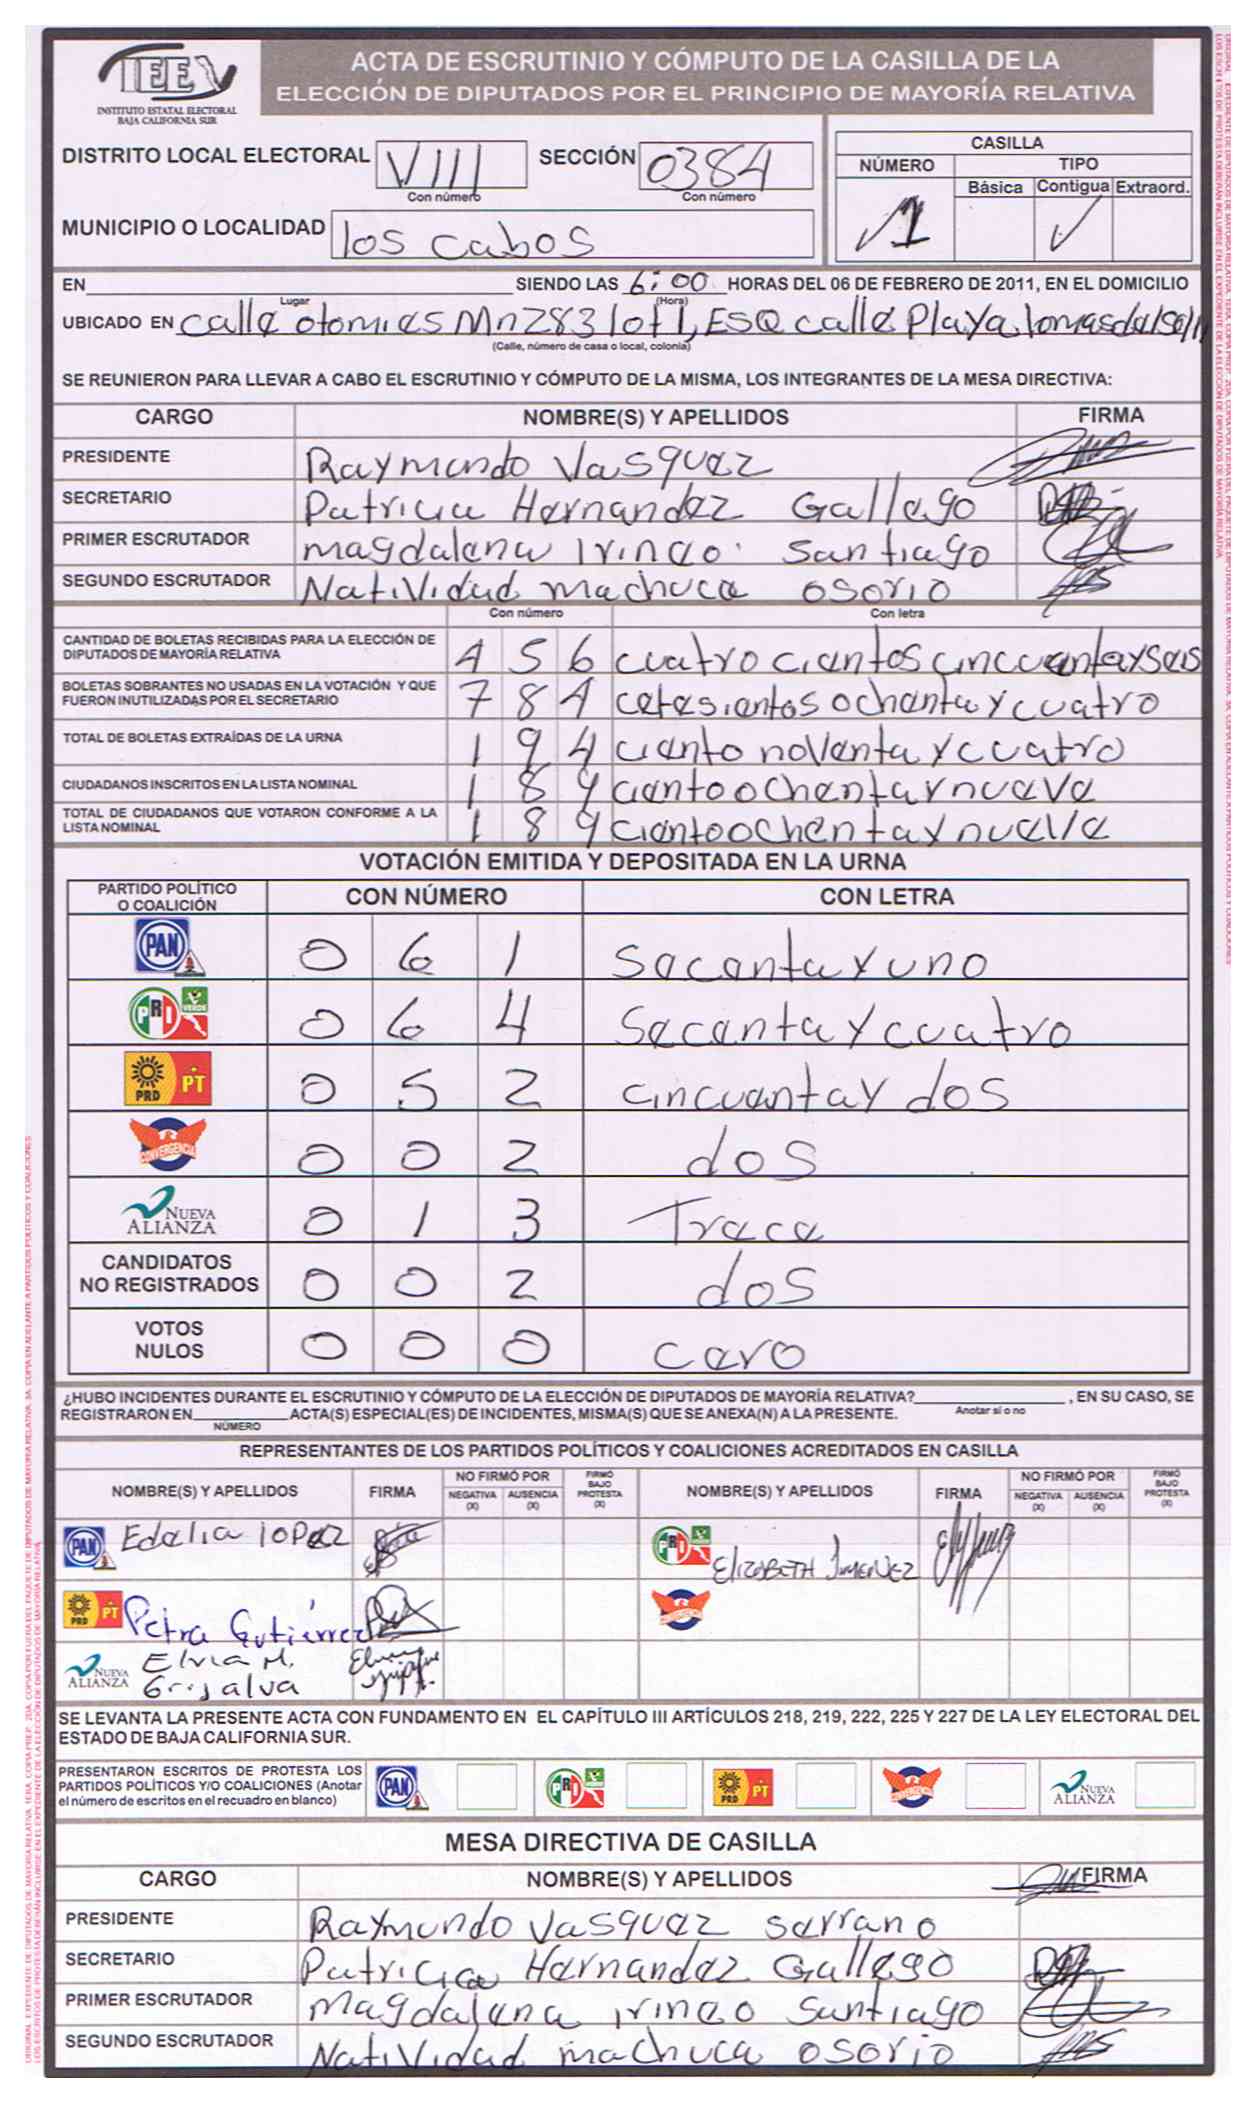 IEE
INSTITUTO ESTATAL ELECTORAL
BAJA CALIFORNIA SUR
ACTA DE ESCRUTINIO Y CÓMPUTO DE LA CASILLA DE LA
ELECCIÓN DE DIPUTADOS POR EL PRINCIPIO DE MAYORÍA RELATIVA
DISTRITO LOCAL ELECTORAL VIII SECCIÓN 0384
Con número Con número
MUNICIPIO O LOCALIDAD los cabos
CASILLA
NÚMERO TIPO
Básica Contigua Extraord.
1 ✓
EN SIENDO LAS 6:00 HORAS DEL 06 DE FEBRERO DE 2011, EN EL DOMICILIO
Lugar (Hora)
UBICADO EN calle otomies Mn283 lot1, ESQ calle Playa, lomas del sol
(Calle, número de casa o local, colonia)
SE REUNIERON PARA LLEVAR A CABO EL ESCRUTINIO Y CÓMPUTO DE LA MISMA, LOS INTEGRANTES DE LA MESA DIRECTIVA:
CARGO NOMBRE(S) Y APELLIDOS FIRMA
PRESIDENTE Raymundo Vasquez
SECRETARIO Patricia Hernandez Gallego
PRIMER ESCRUTADOR magdalena irineo Santiago
SEGUNDO ESCRUTADOR Natividad machuca osorio
Con número Con letra
CANTIDAD DE BOLETAS RECIBIDAS PARA LA ELECCIÓN DE
DIPUTADOS DE MAYORÍA RELATIVA 4 5 6 cuatro cientos cincuenta y seis
BOLETAS SOBRANTES NO USADAS EN LA VOTACIÓN Y QUE
FUERON INUTILIZADAS POR EL SECRETARIO 7 8 4 cetesientos ochenta y cuatro
TOTAL DE BOLETAS EXTRAÍDAS DE LA URNA 1 9 4 ciento noventa y cuatro
CIUDADANOS INSCRITOS EN LA LISTA NOMINAL 1 8 9 ciento ochenta y nueve
TOTAL DE CIUDADANOS QUE VOTARON CONFORME A LA
LISTA NOMINAL 1 8 9 ciento ochenta y nueve
VOTACIÓN EMITIDA Y DEPOSITADA EN LA URNA
PARTIDO POLÍTICO
O COALICIÓN CON NÚMERO CON LETRA
PAN 0 6 1 secenta y uno
PRI VERDE 0 6 4 secenta y cuatro
PRD PT 0 5 2 cincuenta y dos
CONVERGENCIA 0 0 2 dos
NUEVA ALIANZA 0 1 3 Trece
CANDIDATOS
NO REGISTRADOS 0 0 2 dos
VOTOS
NULOS 0 0 0 cero
¿HUBO INCIDENTES DURANTE EL ESCRUTINIO Y CÓMPUTO DE LA ELECCIÓN DE DIPUTADOS DE MAYORÍA RELATIVA? , EN SU CASO, SE
Anotar sí o no
REGISTRARON EN ACTA(S) ESPECIAL(ES) DE INCIDENTES, MISMA(S) QUE SE ANEXA(N) A LA PRESENTE.
NÚMERO
REPRESENTANTES DE LOS PARTIDOS POLÍTICOS Y COALICIONES ACREDITADOS EN CASILLA
NOMBRE(S) Y APELLIDOS FIRMA NO FIRMÓ POR NEGATIVA (X) AUSENCIA (X) FIRMÓ BAJO PROTESTA (X) NOMBRE(S) Y APELLIDOS FIRMA NO FIRMÓ POR NEGATIVA (X) AUSENCIA (X) FIRMÓ BAJO PROTESTA (X)
PAN Edelia lopez PRI VERDE ELIZABETH JIMENEZ
PRD PT Petra Gutiérrez CONVERGENCIA
NUEVA ALIANZA Elvia M.
Grijalva
SE LEVANTA LA PRESENTE ACTA CON FUNDAMENTO EN EL CAPÍTULO III ARTÍCULOS 218, 219, 222, 225 Y 227 DE LA LEY ELECTORAL DEL
ESTADO DE BAJA CALIFORNIA SUR.
PRESENTARON ESCRITOS DE PROTESTA LOS
PARTIDOS POLÍTICOS Y/O COALICIONES (Anotar
el número de escritos en el recuadro en blanco) PAN PRI VERDE PRD PT CONVERGENCIA NUEVA ALIANZA
MESA DIRECTIVA DE CASILLA
CARGO NOMBRE(S) Y APELLIDOS FIRMA
PRESIDENTE Raymundo Vasquez serrano
SECRETARIO Patricia Hernandez Gallego
PRIMER ESCRUTADOR Magdalena irineo Santiago
SEGUNDO ESCRUTADOR Natividad machuca osorio